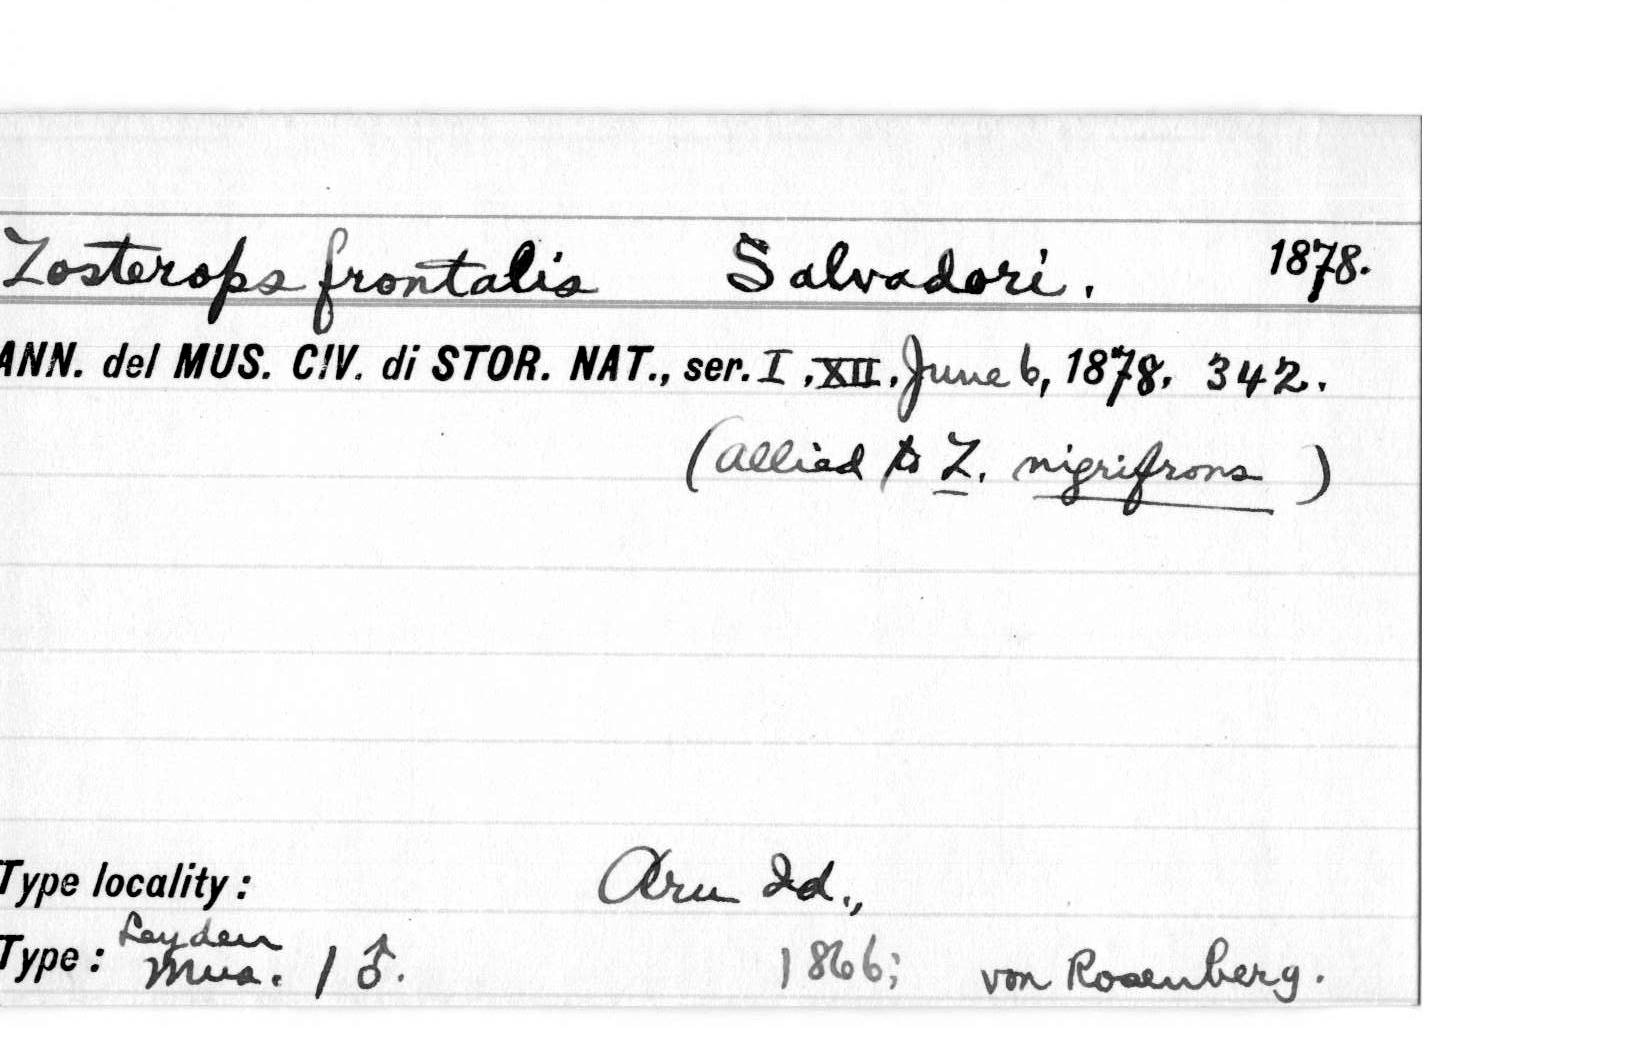 Zosterops frontalis Salvadori. 1878.
ANN. del MUS. CIV. di STOR. NAT., ser. I, XII, June 6, 1878. 342.
(allied to Z. nigrifrons)
Type locality: Aru Id.,
Type: Leyden Mus. 1 ♂. 1866; von Rosenberg.